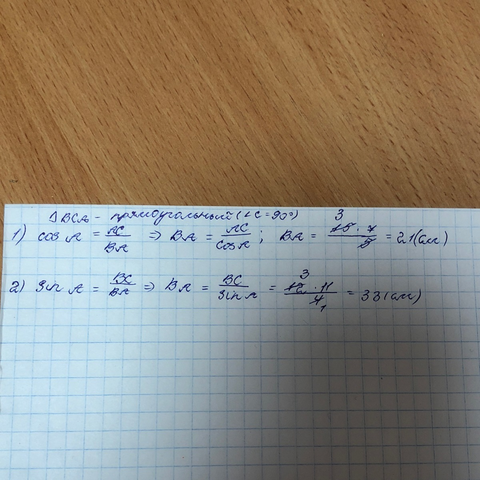 ΔBCA - прямоугольный (∠C=90°)
1) cos A = AC/BA ⇒ BA = AC/cos A; BA = 15·7/5 = 21(см) 3
2) sin A = BC/BA ⇒ BA = BC/sin A = 12·11/4 = 33(см) 3 1